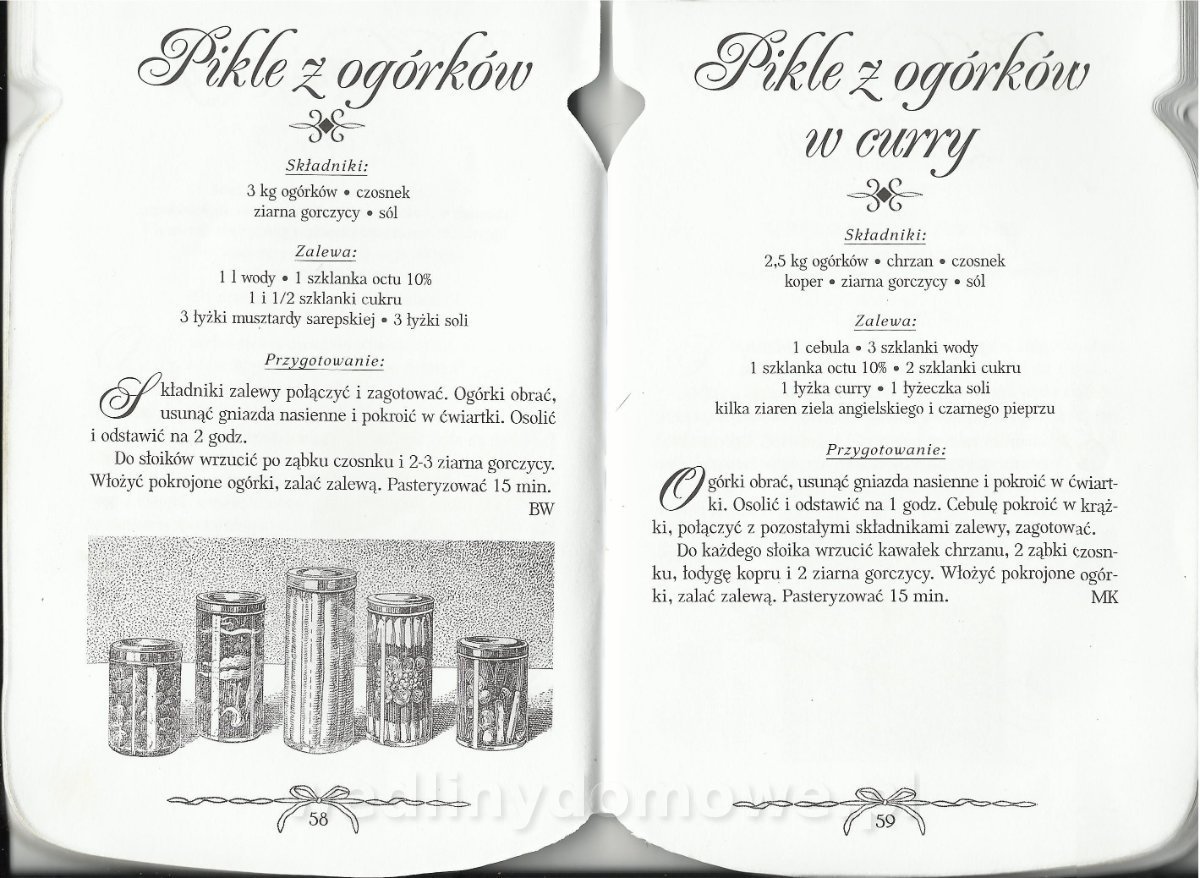 Pikle z ogórków
Składniki:
3 kg ogórków • czosnek
ziarna gorczycy • sól
Zalewa:
1 l wody • 1 szklanka octu 10%
1 i 1/2 szklanki cukru
3 łyżki musztardy sarepskiej • 3 łyżki soli
Przygotowanie:
Składniki zalewy połączyć i zagotować. Ogórki obrać,
usunąć gniazda nasienne i pokroić w ćwiartki. Osolić
i odstawić na 2 godz.
Do słoików wrzucić po ząbku czosnku i 2-3 ziarna gorczycy.
Włożyć pokrojone ogórki, zalać zalewą. Pasteryzować 15 min.
BW
58
Pikle z ogórków
w curry
Składniki:
2,5 kg ogórków • chrzan • czosnek
koper • ziarna gorczycy • sól
Zalewa:
1 cebula • 3 szklanki wody
1 szklanka octu 10% • 2 szklanki cukru
1 łyżka curry • 1 łyżeczka soli
kilka ziaren ziela angielskiego i czarnego pieprzu
Przygotowanie:
Ogórki obrać, usunąć gniazda nasienne i pokroić w ćwiart-
ki. Osolić i odstawić na 1 godz. Cebulę pokroić w krąż-
ki, połączyć z pozostałymi składnikami zalewy, zagotować.
Do każdego słoika wrzucić kawałek chrzanu, 2 ząbki czosn-
ku, łodygę kopru i 2 ziarna gorczycy. Włożyć pokrojone ogór-
ki, zalać zalewą. Pasteryzować 15 min. MK
59